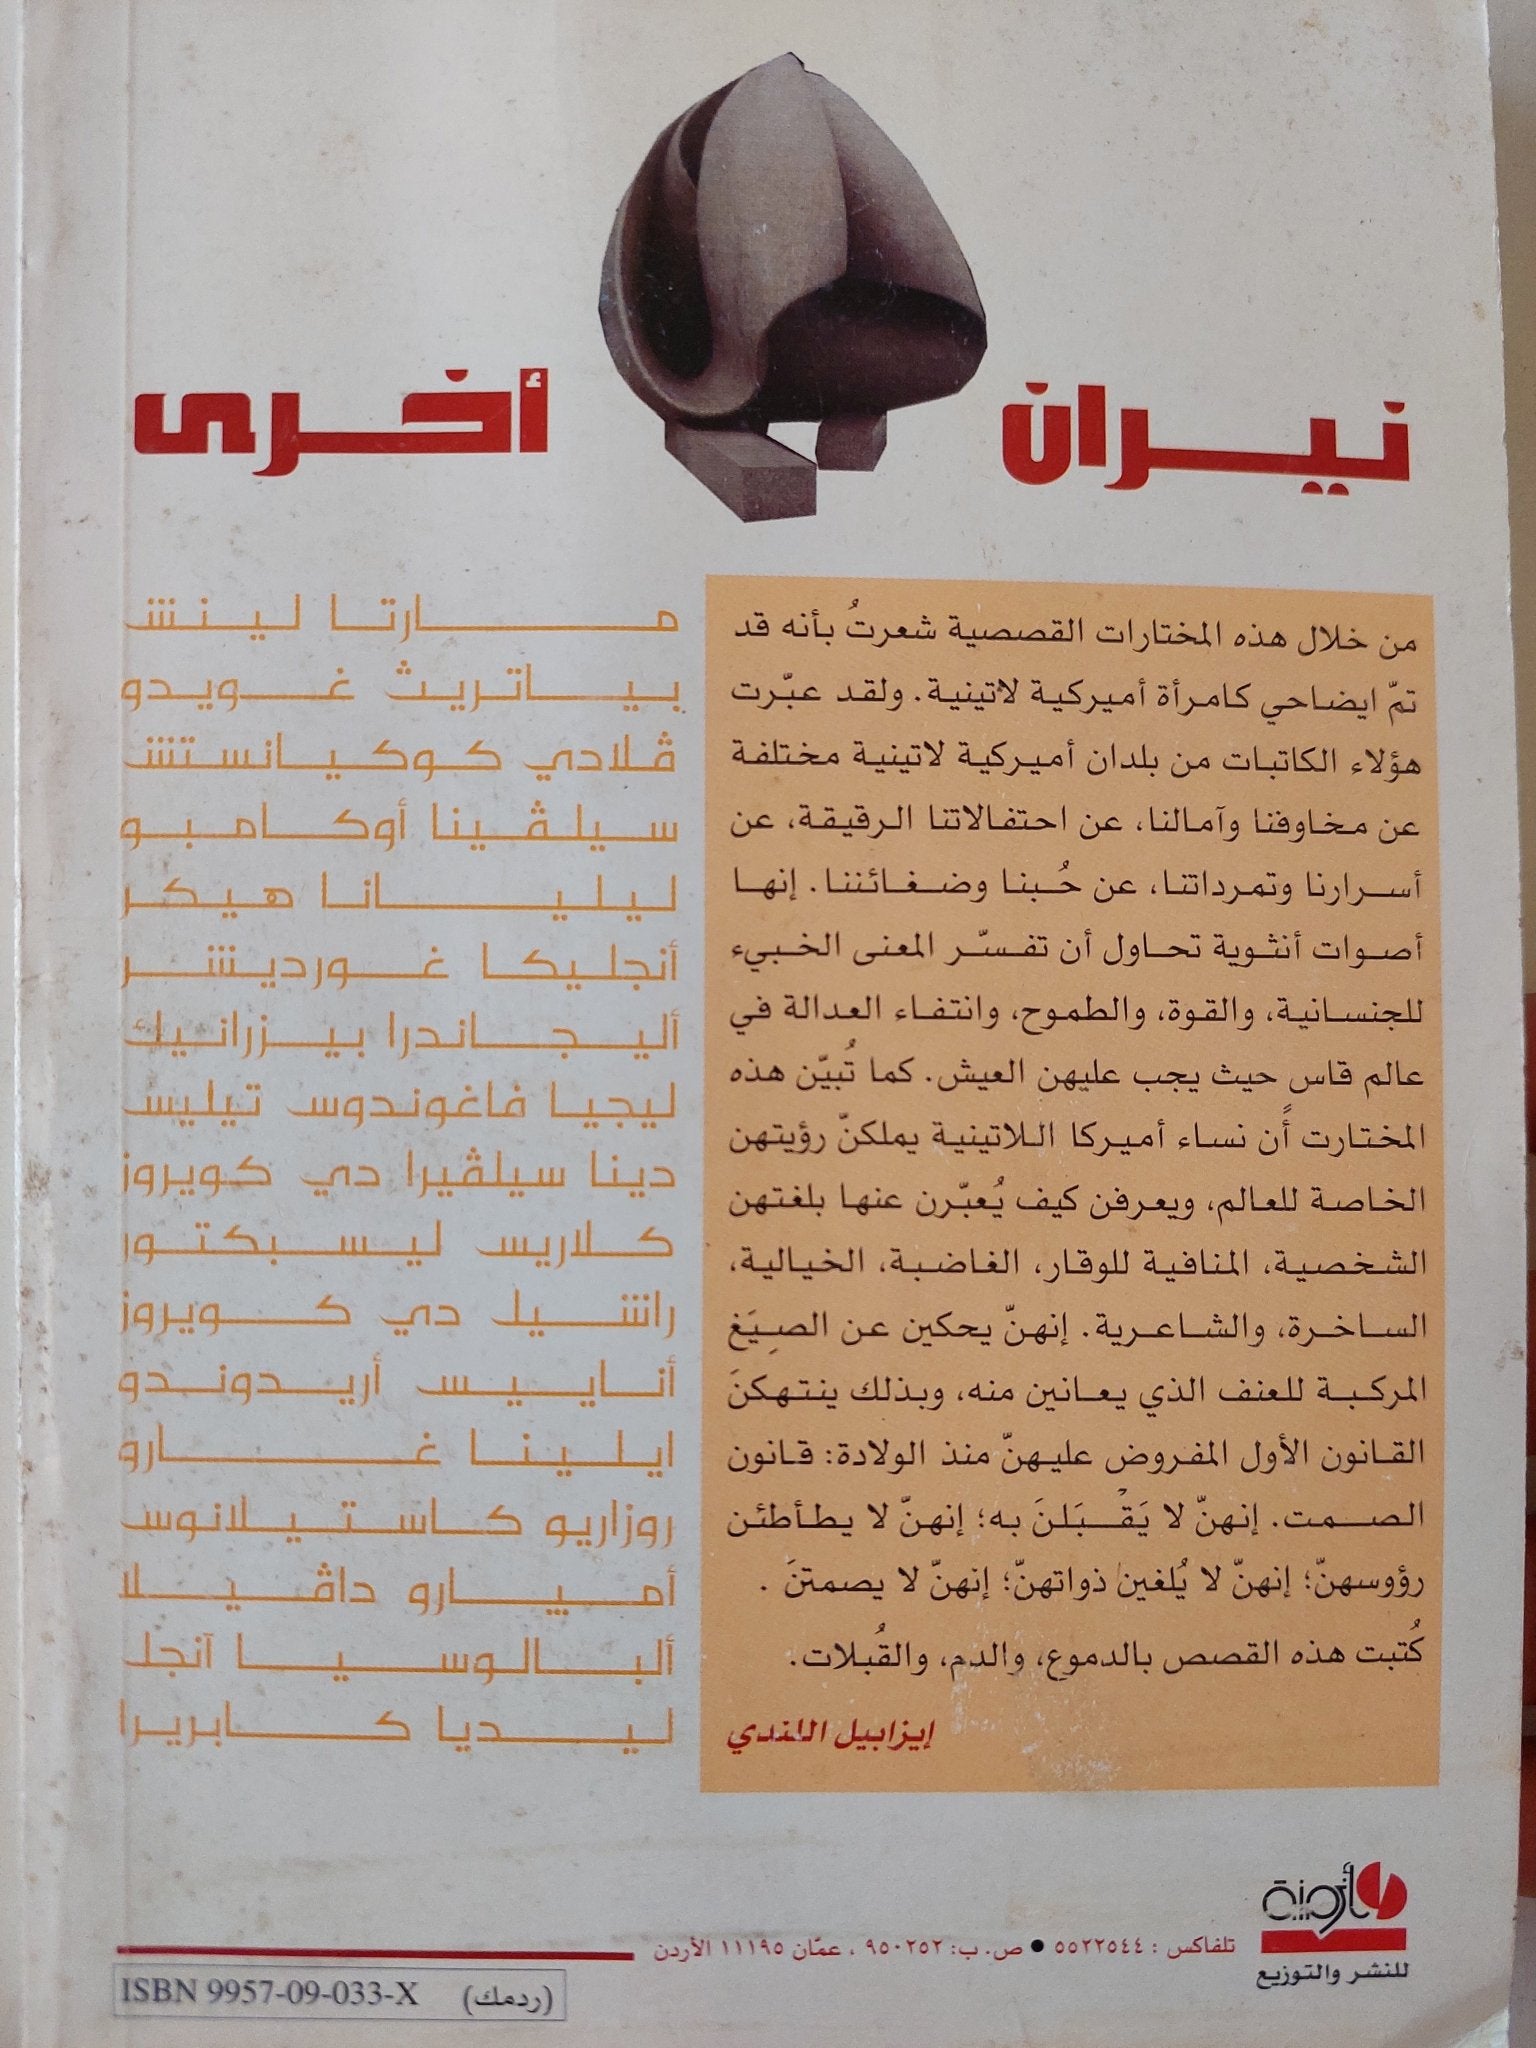 نيران أخرى
من خلال هذه المختارات القصصية شعرتُ بأنه قد
تمّ ايضاحي كامرأة أميركية لاتينية. ولقد عبّرت
هؤلاء الكاتبات من بلدان أميركية لاتينية مختلفة
عن مخاوفنا وآمالنا، عن احتفالاتنا الرقيقة، عن
أسرارنا وتمرداتنا، عن حُبنا وضغائننا. إنها
أصوات أنثوية تحاول أن تفسّر المعنى الخبيء
للجنسانية، والقوة، والطموح، وانتفاء العدالة في
عالم قاس حيث يجب عليهن العيش. كما تُبيّن هذه
المختارت أن نساء أميركا اللاتينية يملكنّ رؤيتهن
الخاصة للعالم، ويعرفن كيف يُعبّرن عنها بلغتهن
الشخصية، المنافية للوقار، الغاضبة، الخيالية،
الساخرة، والشاعرية. إنهنّ يحكين عن الصِيَغ
المركبة للعنف الذي يعانين منه، وبذلك ينتهكنَ
القانون الأول المفروض عليهنّ منذ الولادة: قانون
الصمت. إنهنّ لا يَقْبَلنَ به؛ إنهنّ لا يطأطئن
رؤوسهنّ؛ إنهنّ لا يُلغين ذواتهنّ؛ إنهنّ لا يصمتنَ .
كُتبت هذه القصص بالدموع، والدم، والقُبلات.
إيزابيل اللندي
مارتا لينش
بياتريث غويدو
ڤلادي كوكيانستش
سيلڤينا أوكامبو
ليليانا هيكر
أنجليكا غورديشر
أليجاندرا بيزرانيك
ليجيا فاغوندوس تيليس
دينا سيلڤيرا دي كويروز
كلاريس ليسبكتور
راشيل دي كويروز
أناييس أريدوندو
ايلينا غارو
روزاريو كاستيلانوس
أميارو داڤيلا
ألبالوسيا آنجل
ليديا كابريرا
أزمنة
للنشر والتوزيع
تلفاكس : ٥٥٢٢٥٤٤ ● ص. ب: ٩٥٠٢٥٢ ، عمّان ١١١٩٥ الأردن
ISBN 9957-09-033-X (ردمك)